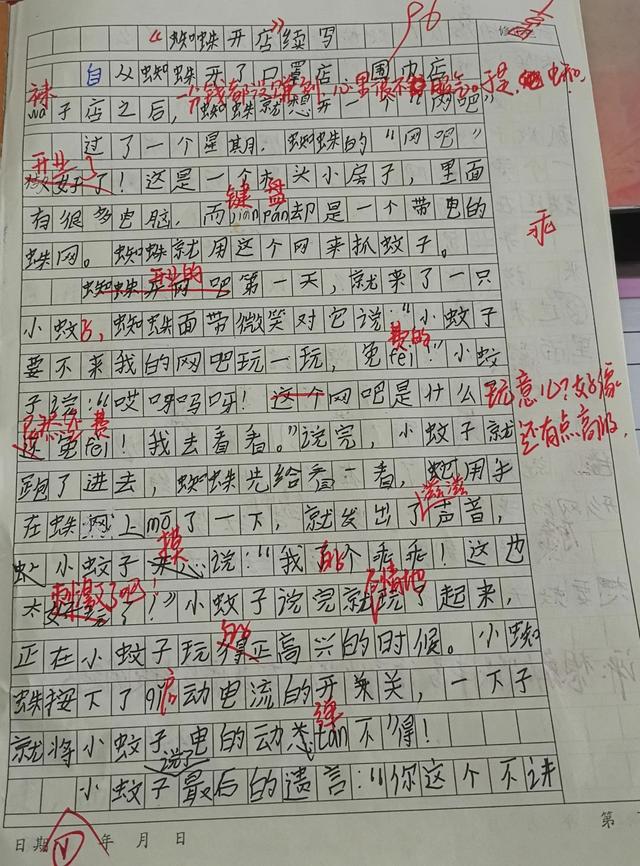 96
《蜘蛛开店》续写
自从蜘蛛开了口罩店、围巾店
袜wà子店之后，一分钱都没赚到，心里很不服气。于是，蜘蛛就想开一个“网吧”
过了一个星期，蜘蛛的“网吧”
开业了！这是一个木头小房子，里面
有很多电脑，而键盘jiàn pán却是一个带电的
蛛网。蜘蛛就用这个网来抓蚊子。
乖
蜘蛛开网吧开业的第一天，就来了一只
小蚊子，蜘蛛面带微笑对它说：“小蚊子
要不来我的网吧玩一玩，免费的fèi！”小蚊
子说：“哎呀妈呀！这个网吧是什么玩意儿？好像
还免费fèi！我去看看。”说完，小蚊子就
还有点高级
跑了进去，蜘蛛先给看一看，用手
在蛛网上mō摸了一下，就发出了滋滋声音，
小蚊子说：“我的个乖乖！这也
太刺激了吧！”小蚊子说完就玩了起来，
正在小蚊子玩的正高兴的时候。小蜘
蛛按下了qǐ启动电流的开关，一下子
就将小蚊子电的动弹tán不得！
小蚊子说了最后的遗言：“你这个不讲
日期 年 月 日
第